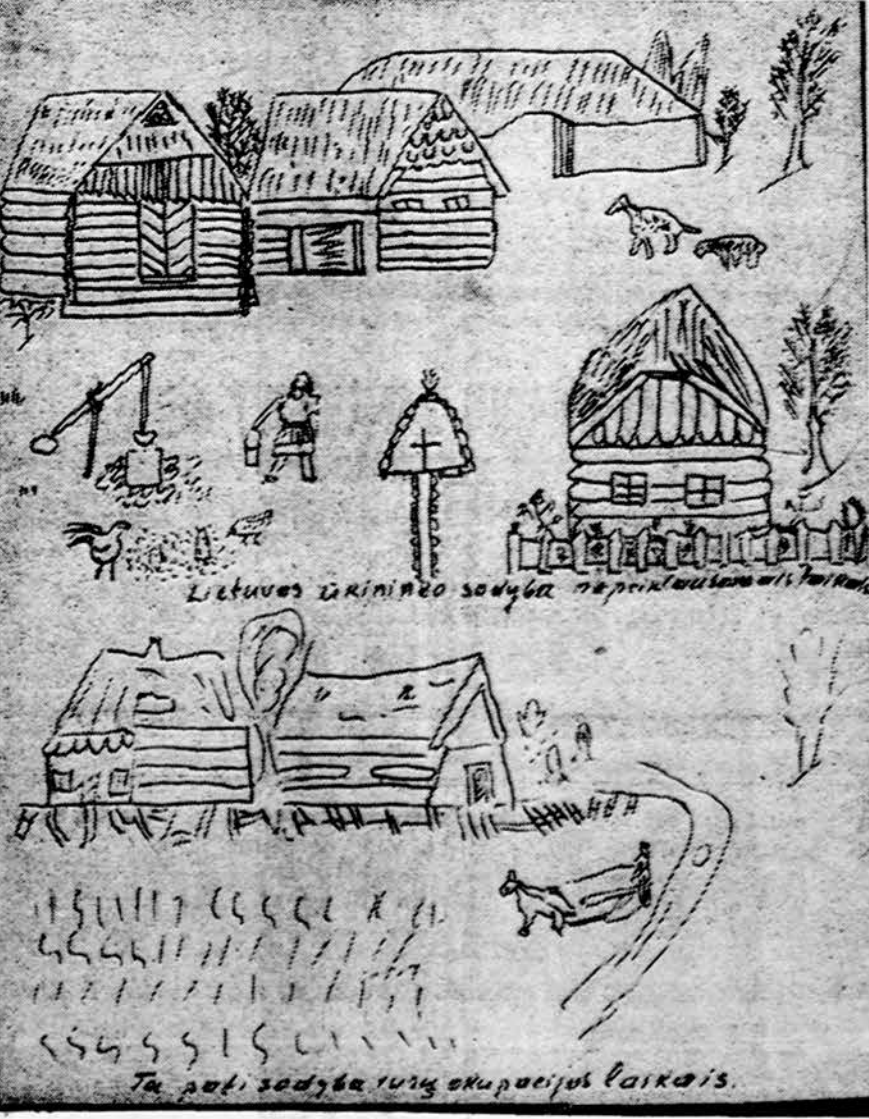 Lietuvos ūkininko sodyba nepriklausomais laikais
Ta pati sodyba rusų okupacijos laikais.